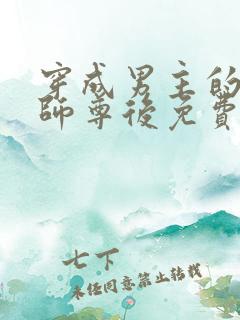 穿成男主的
師尊後免費
七下
未經同意禁止轉載